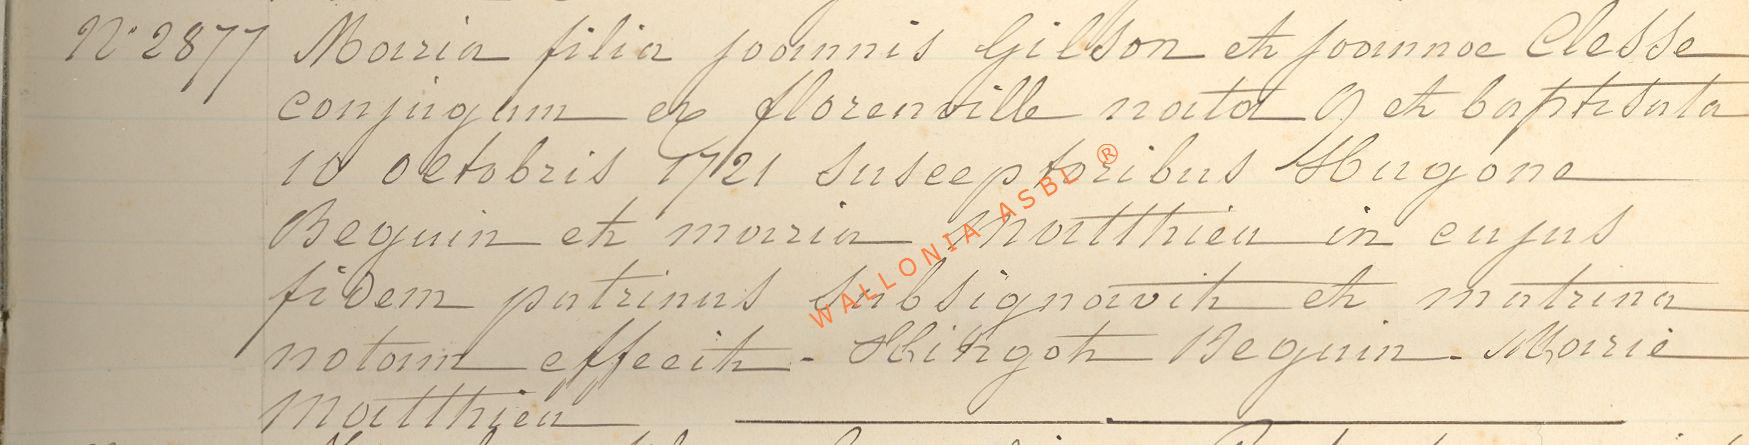 N° 2877 Maria filia joannis Gilson et joannae Clesse
conjugum ex florenville nata 9 et baptisata
10 octobris 1721 susceptoribus Hugone
Beguin et maria Matthieu in cujus
fidem patrinus subsignavit et matrina
notam effecit - Hingot Beguin - Marie
Matthieu
WALLONIA ASBL ®